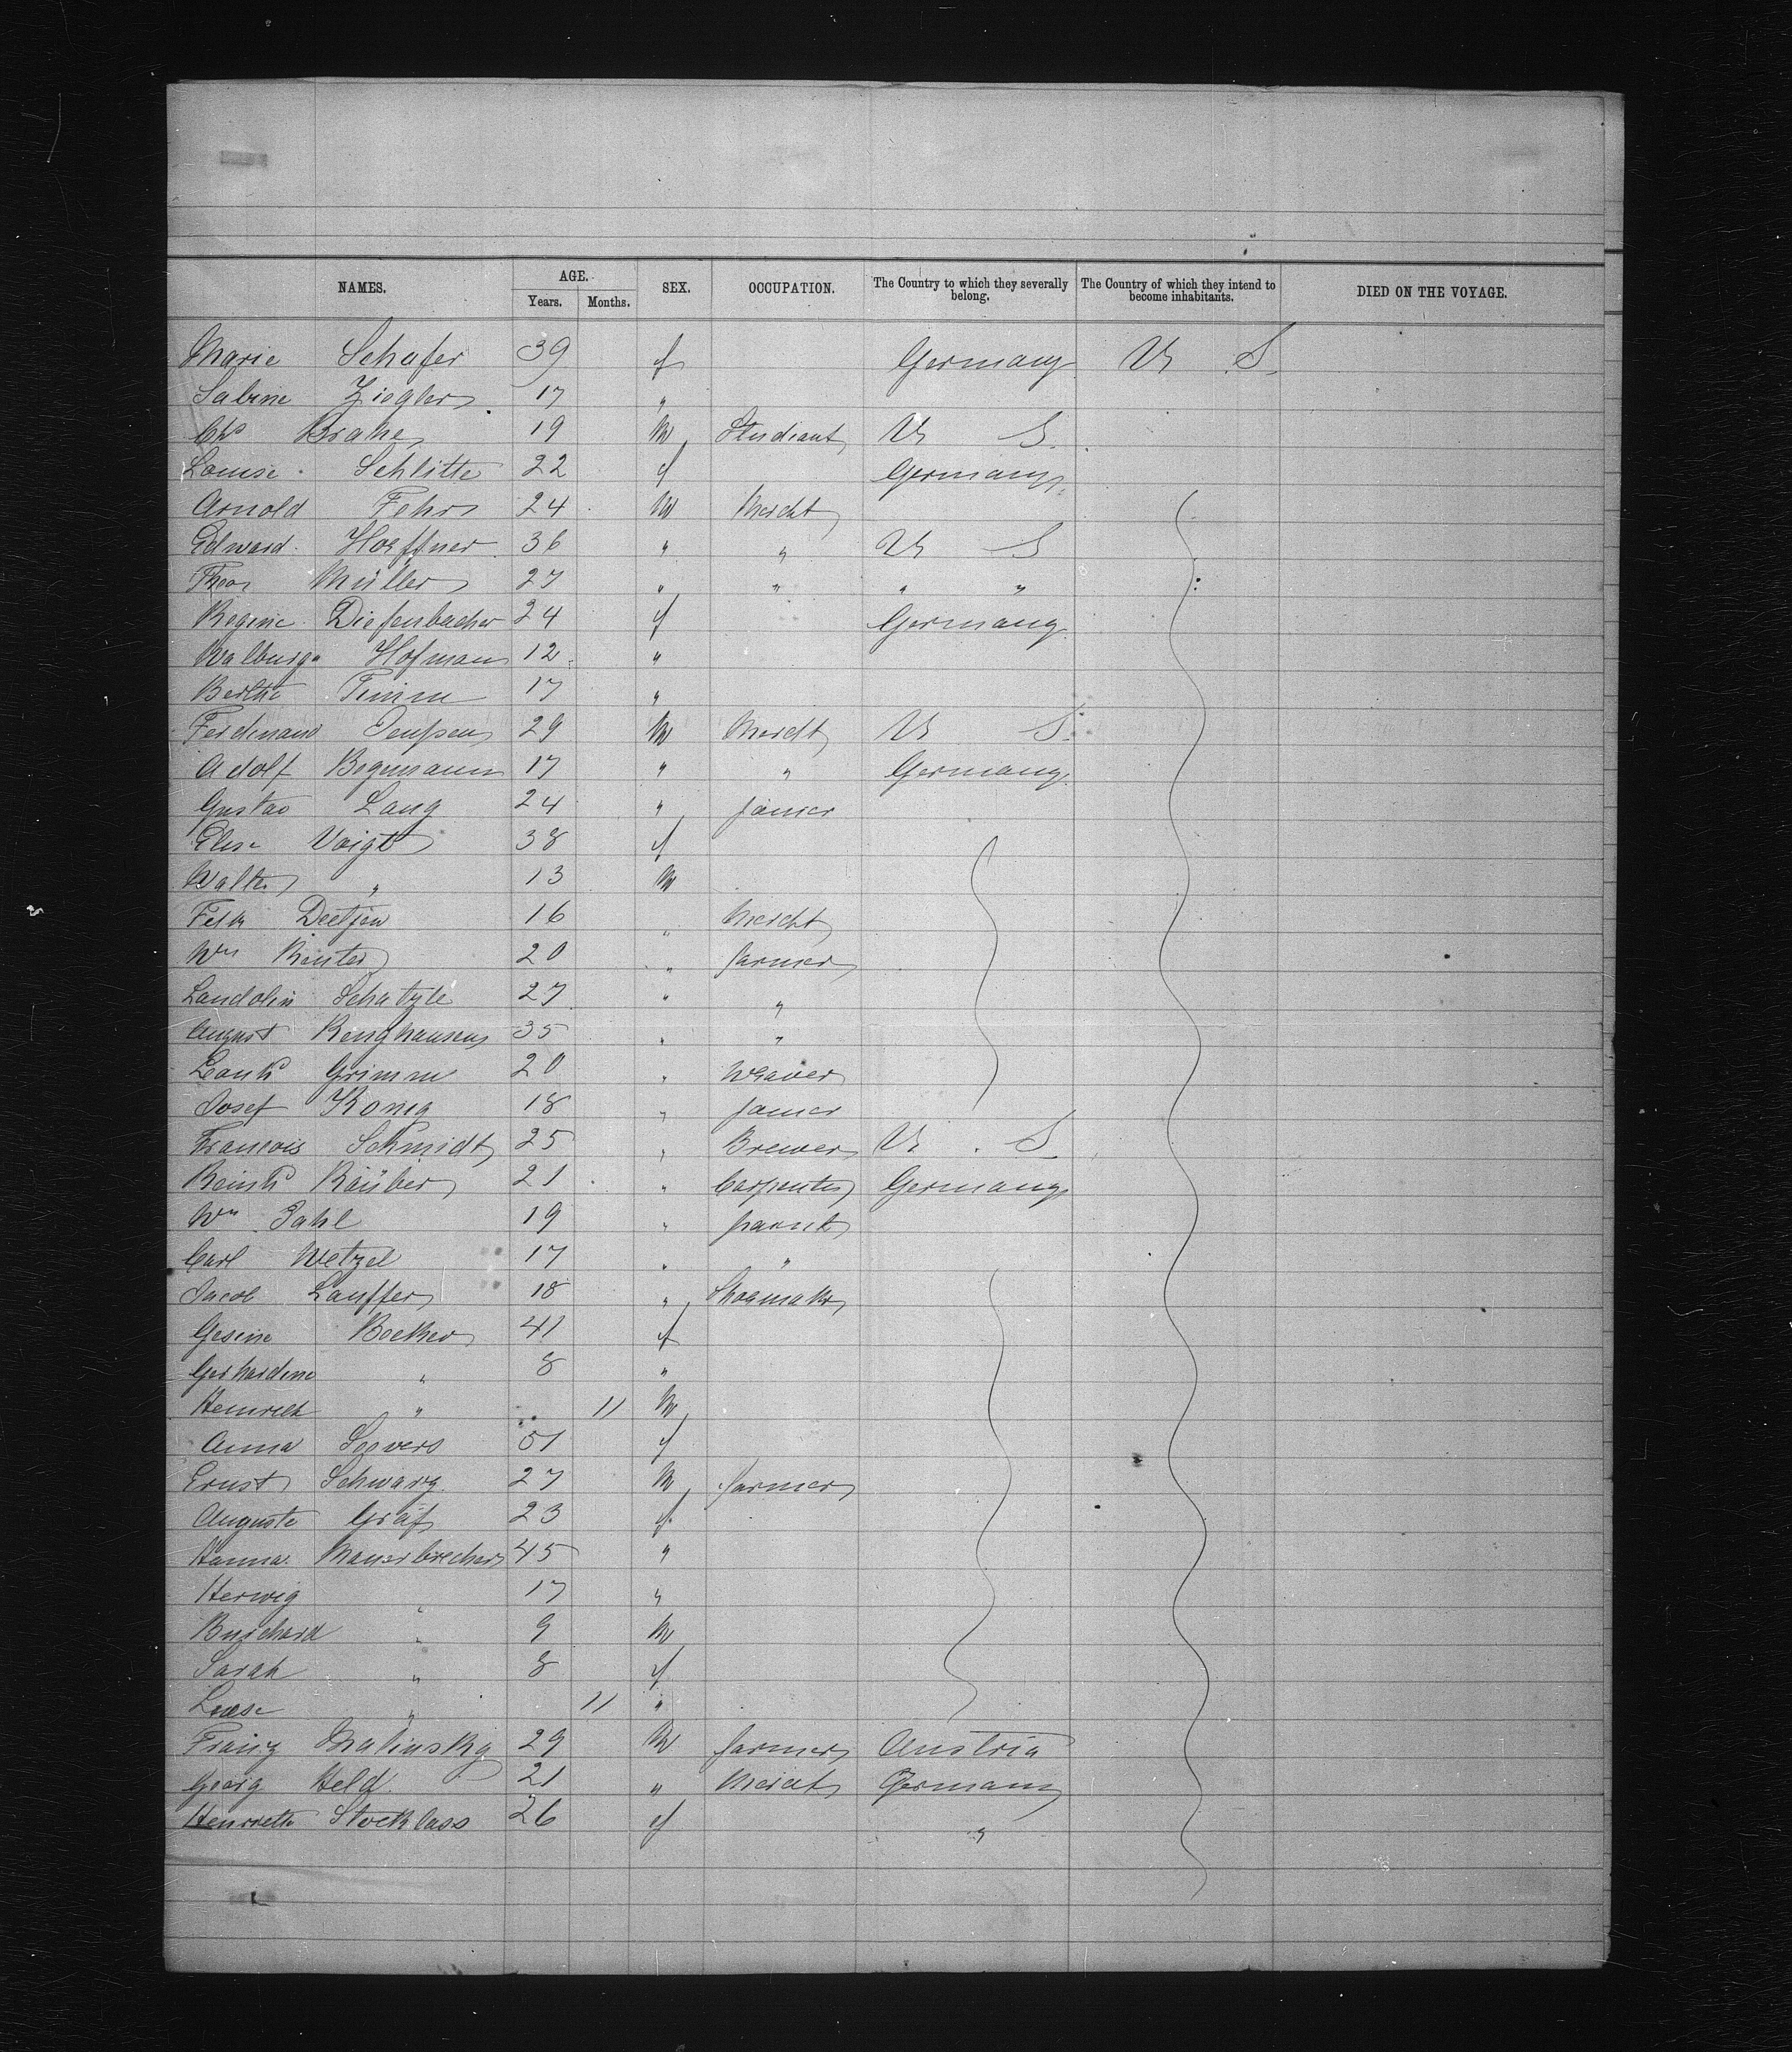 NAMES. AGE. Years. Months. SEX. OCCUPATION. The Country to which they severally belong. The Country of which they intend to become inhabitants. DIED ON THE VOYAGE.
Marie Schafer 39 f Germany U S.
Sabine Ziegler 17 "
Chs Brake 19 M Studeant U S
Louise Schlitte 22 f Germany
Arnold Fehr 24 M Mercht
Edward Hoeffner 36 " " U S
Theo Müller 27 " " " "
Regine Diefenbacher 24 f Germany
Walburga Hofmann 12 "
Bertha Timm 17 "
Ferdinand 29 M Mercht U S.
Adolf Begemann 17 " " Germany
Gustav Lang 24 " joiner
Elise Voigt 38 f
Walter " 13 M
Deetjen 16 " Mercht
Wm 20 " farmer
Landolin Schatzle 27 " "
August Renghausen 35 " "
Grimm 20 " Weaver
Josef König 18 "
Francois Schmidt 25 " Brewer U S
Reinhd Räuber 21 " Carpenter Germany
Wm 19 "
Carl Wetzel 17 " "
Jacob Lauffer 18 " Shoemaker
Gesine Boeker 41 f
Gerhardine " 8 "
Heinrich " 11 M
Anna Seevers 51 f
Ernst Schwarz 27 M farmer
Auguste Gräf 23 f
Hanna Mauerbrecher 45 "
Herwig " 17 "
Burchard " 9 M
Sarah " 8 f
" 11 "
Franz Malinsky 29 M farmer Austria
Georg Held 21 " Mercht Germany
Henriette Stocklass 26 f "